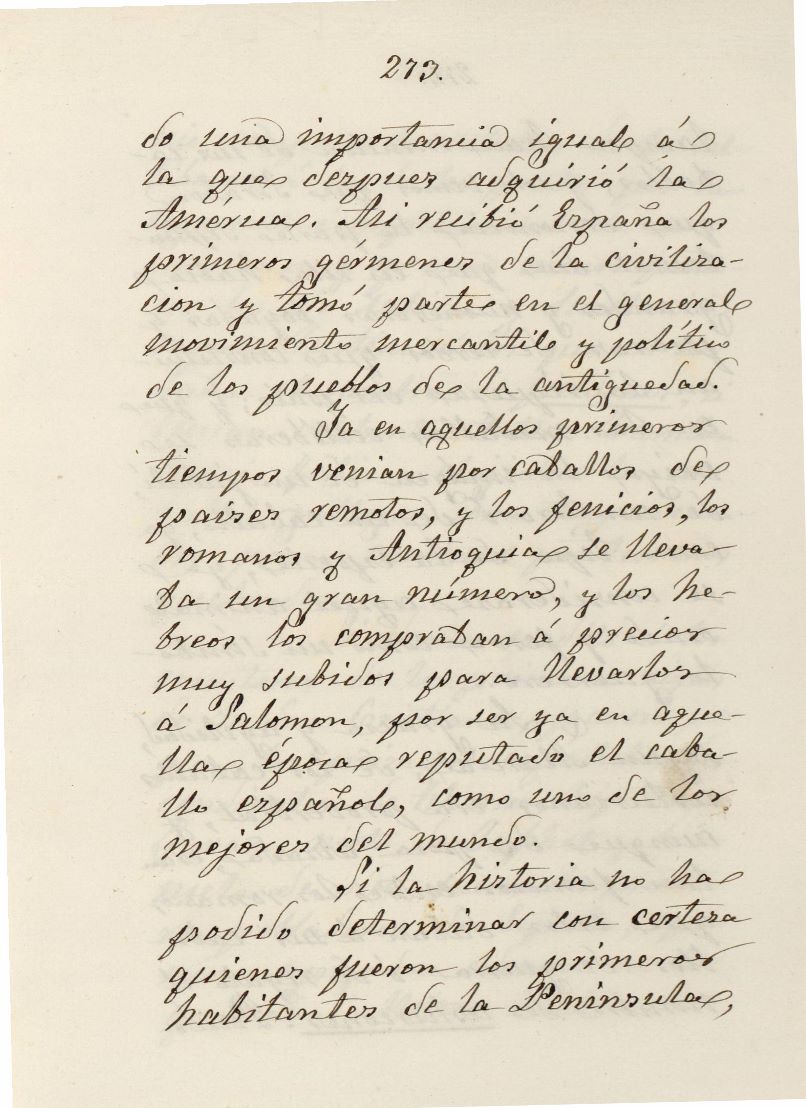 273.
do una importancia igual á
la que despues adquirió la
América. Asi recibió España los
primeros gérmenes de la civiliza-
cion y tomó parte en el general
movimiento mercantil y polítio
de los pueblos de la antiguedad.
Ya en aquellos primeros
tiempos venian por caballos de
paises remotos, y los fenicios, los
romanos y Antioquia se lleva-
ba un gran número, y los he-
breos los compraban á precios
muy subidos para llevarlos
á Salomon, por ser ya en aque-
lla época reputado el caba-
llo español, como uno de los
mejores del mundo.
Si la historia no ha
podido determinar con certeza
quienes fueron los primeros
habitantes de la Peninsula,